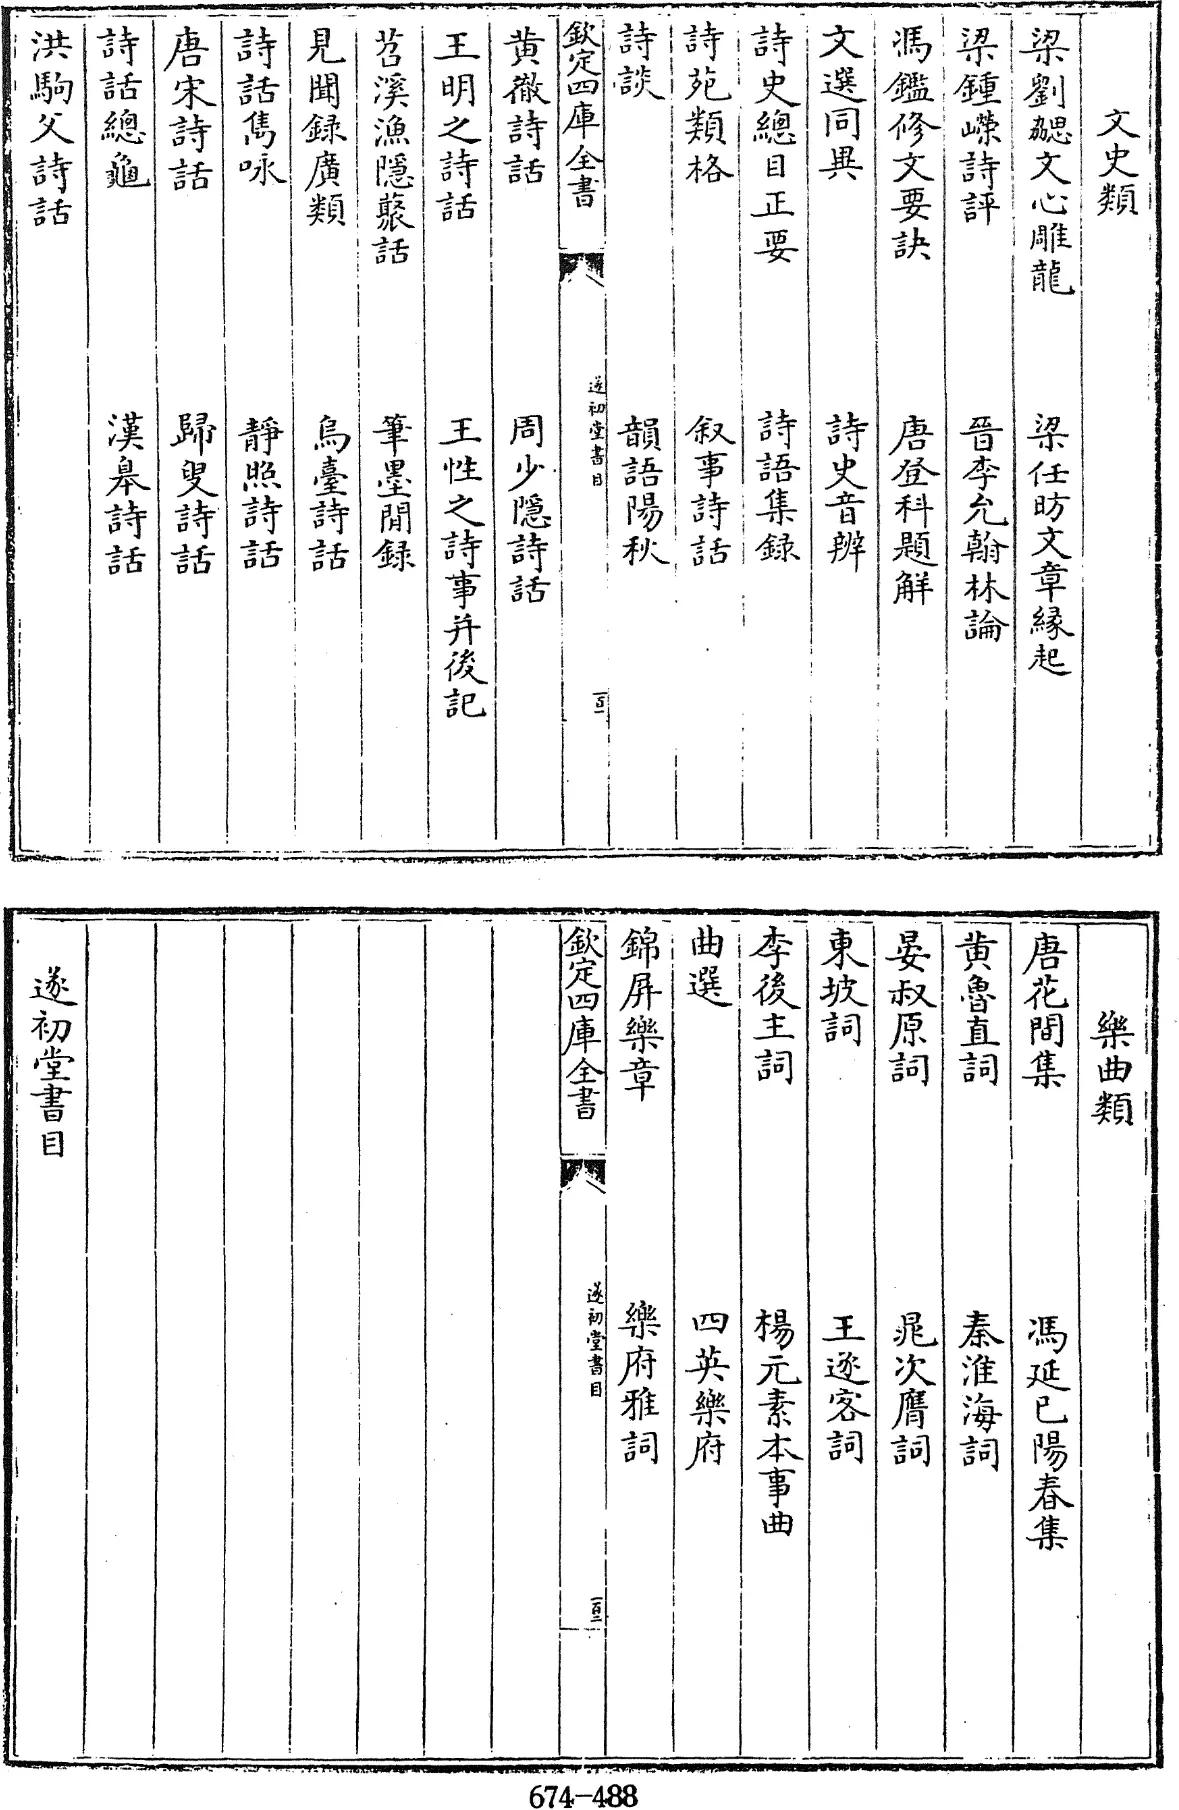 文史類
梁劉勰文心雕龍 梁任昉文章縁起
梁鍾嶸詩評 晉李允翰林論
馮鑑修文要訣 唐登科題解
文選同異 詩史音辨
詩史總目正要 詩語集録
詩苑類格 叙事詩話
詩談 韻語陽秋
欽定四庫全書 遂初堂書目 百一
黄徹詩話 周少隠詩話
王明之詩話 王性之詩事并後記
苕溪漁隠藂話 筆墨閒録
見聞録廣類 烏臺詩話
詩話雋咏 靜照詩話
唐宋詩話 歸叟詩話
詩話總龜 漢皋詩話
洪駒父詩話
樂曲類
唐花間集 馮延已陽春集
黄魯直詞 秦淮海詞
晏叔原詞 晁次膺詞
東坡詞 王逐客詞
李後主詞 楊元素本事曲
曲選 四英樂府
錦屏樂章 樂府雅詞
欽定四庫全書 遂初堂書目 百二
遂初堂書目
674-488